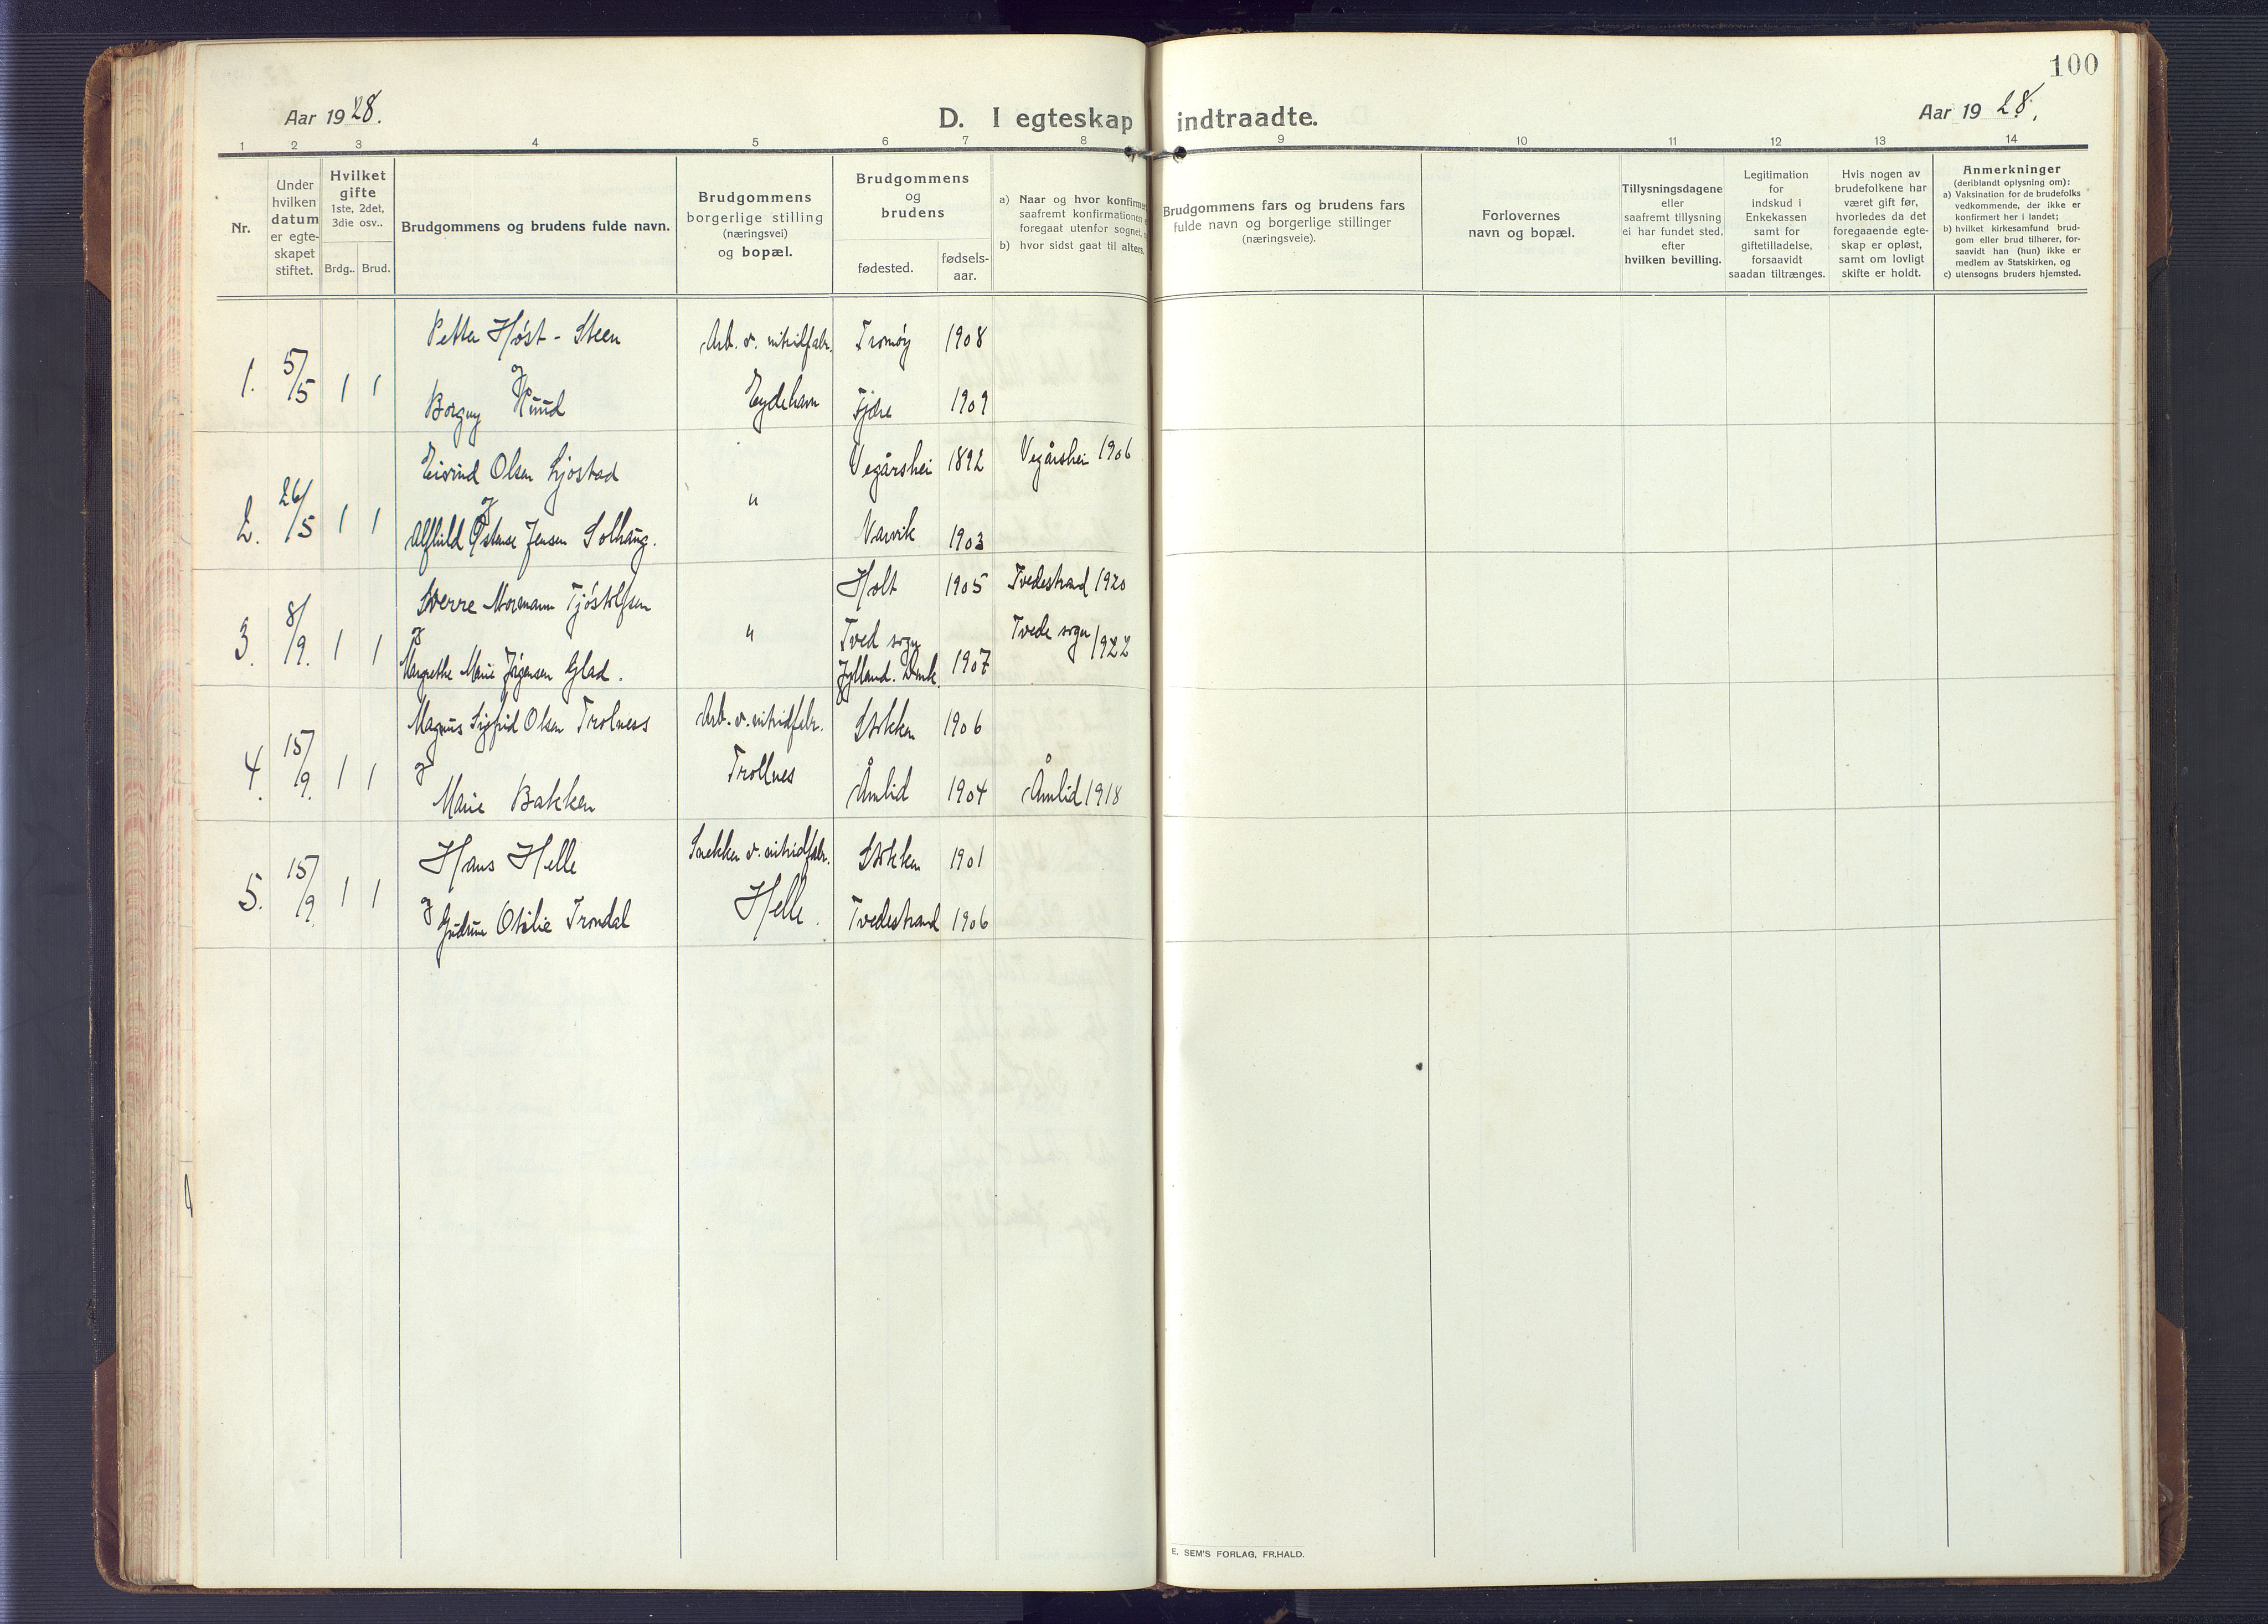 100
Aar 1928.
D. I egteskap indtraadte.
Aar 1928.
1 2 3 4 5 6 7 8 9 10 11 12 13 14
Nr.
Under
hvilken
datum
er egte-
skapet
stiftet.
Hvilket
gifte
1ste, 2det,
3die osv..
Brdg.. Brud.
Brudgommens og brudens fulde navn.
Brudgommens
borgerlige stilling
(næringsvei)
og bopæl.
Brudgommens
og
brudens
fødested.
fødsels-
aar.
a) Naar og hvor konfirme
saafremt konfirmationen
foregaat utenfor sognet,
b) hvor sidst gaat til alters.
Brudgommens fars og brudens fars
fulde navn og borgerlige stillinger
(næringsveie).
Forlovernes
navn og bopæl.
Tillysningsdagene
eller
saafremt tillysning
ei har fundet sted,
efter
hvilken bevilling.
Legitimation
for
indskud i
Enkekassen
samt for
giftetilladelse,
forsaavidt
saadan tiltrænges.
Hvis nogen av
brudefolkene har
været gift før,
hvorledes da det
foregaaende egte-
skap er opløst,
samt om lovligt
skifte er holdt.
Anmerkninger
(deriblandt oplysning om):
a) Vaksination for de brudefolks
vedkommende, der ikke er
konfirmert her i landet;
b) hvilket kirkesamfund brud-
gom eller brud tilhører, for-
saavidt han (hun) ikke er
medlem av Statskirken, og
c) utensogns bruders hjemsted.
1. 5/5 1 1 Petter Høst - Steen Arb. v. nitridfabr. Tromøy 1908
og
Borgny Ruud Eydehavn Tjøre 1909
2. 26/5 1 1 Eivind Olsen Ljøstad " Vegårshei 1892 Vegårshei 1906
og
Alfhild Østense Jensen Solhaug. Narvik 1903
3. 8/9. 1 1 Sverre Normann Tjöstolfsen " Holt 1905 Tvedestrand 1920
og
Margrethe Marie Jørgensen Glad. Tved sogn Jylland. Dmk. 1907 Tvede sogn 1922
4. 15/9. 1 1 Magnus Sigfrid Olsen Trolness Arb. v. nitridfabr. Stokken 1906
og Trollnes
Marie Bakken Åmlid 1904 Åmlid 1918
5. 15/9. 1 1 Hans Helle Snekker v. nitridfabr. Stokken 1901
og Gudrun Otilie Trondal Helle. Tvedestrand 1906
E. SEM'S FORLAG, FR.HALD.